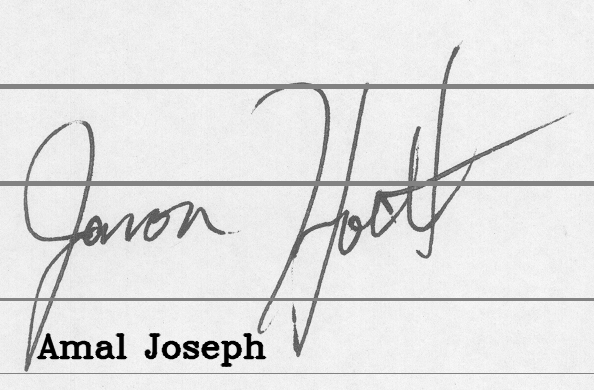 Jason Hoitt
Amal Joseph